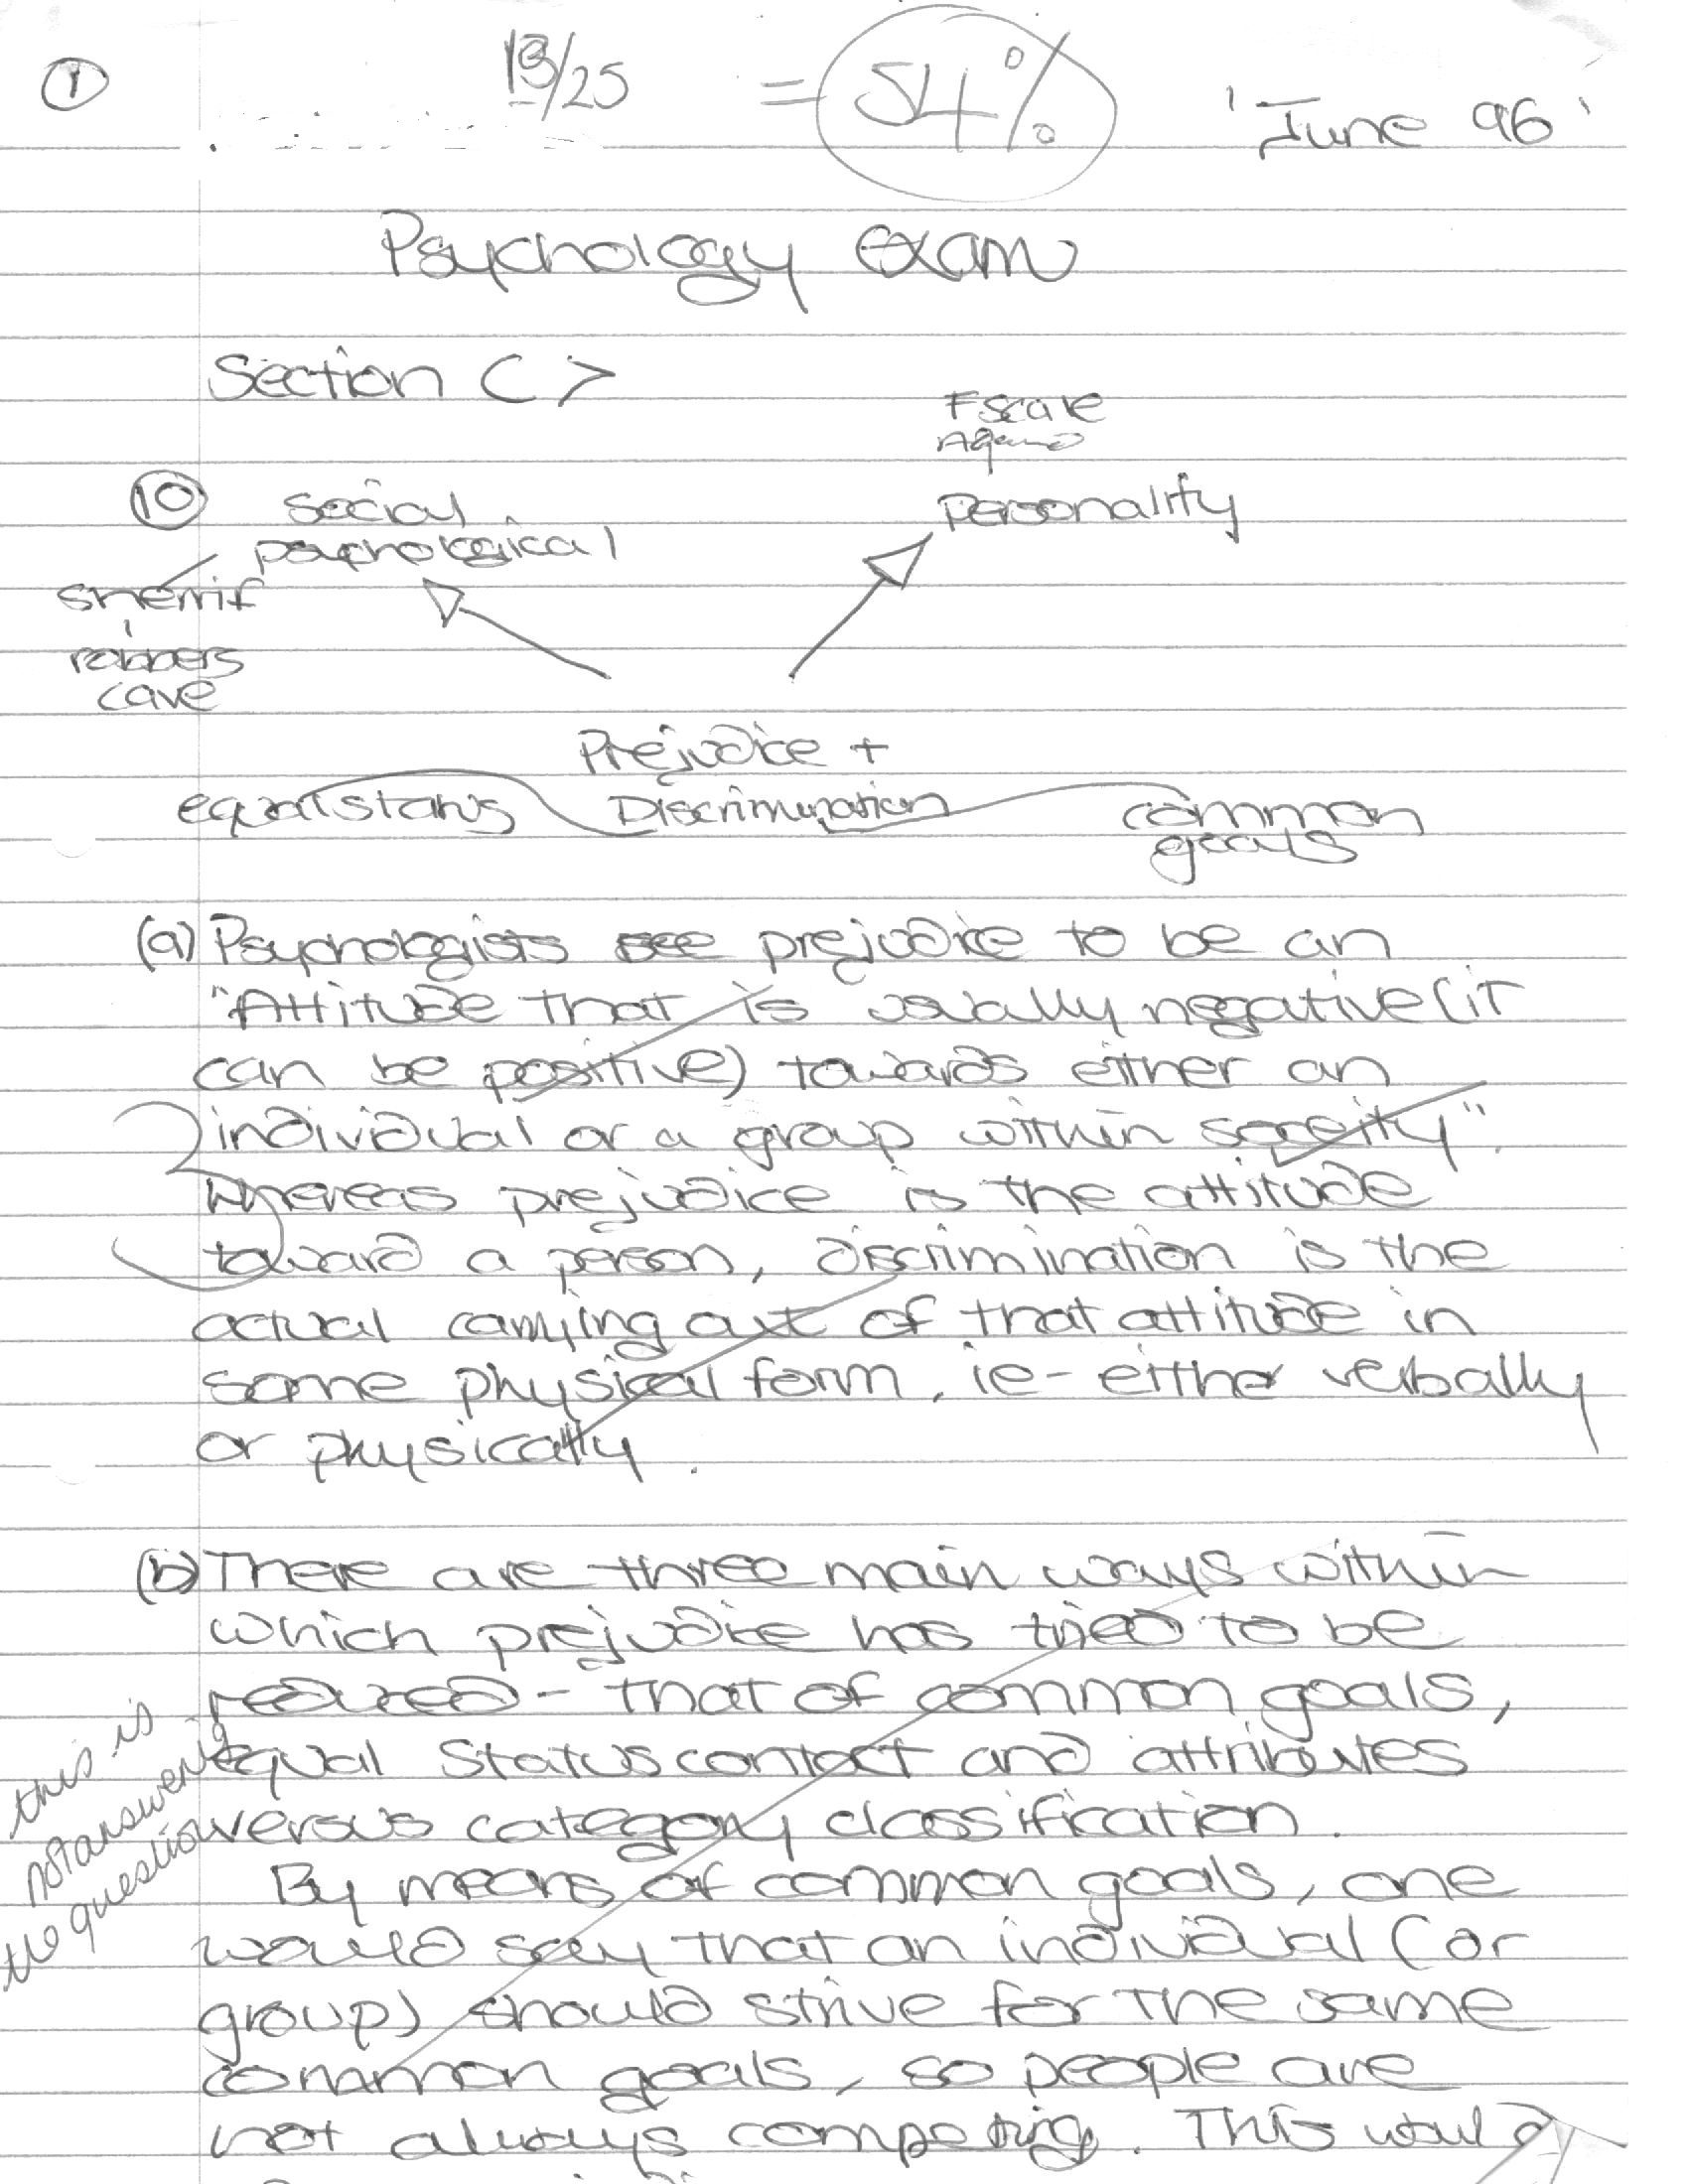 ①
13/25 = 54%
'June 96'
Psychology Exam
Section C >
F scale
⑩ social psychological
Personality
sherrif
robbers
cave
Prejudice +
Discrimination
equal status
common
goals
(a) Psychologists see prejudice to be an
"Attitude that is usually negative (it
can be positive) towards either an
individual or a group within soceity".
Whereas prejudice is the attitude
toward a person, discrimination is the
actual carrying out of that attitude in
some physical form, ie - either verbally
or physically.
(b) There are three main ways within
which prejudice has tried to be
reduced - that of common goals,
equal status contact and attributes
versus category classification.
this is
not answering
the question
By means of common goals, one
would say that an individual (or
group) should strive for the same
common goals, so people are
not always competing. This would